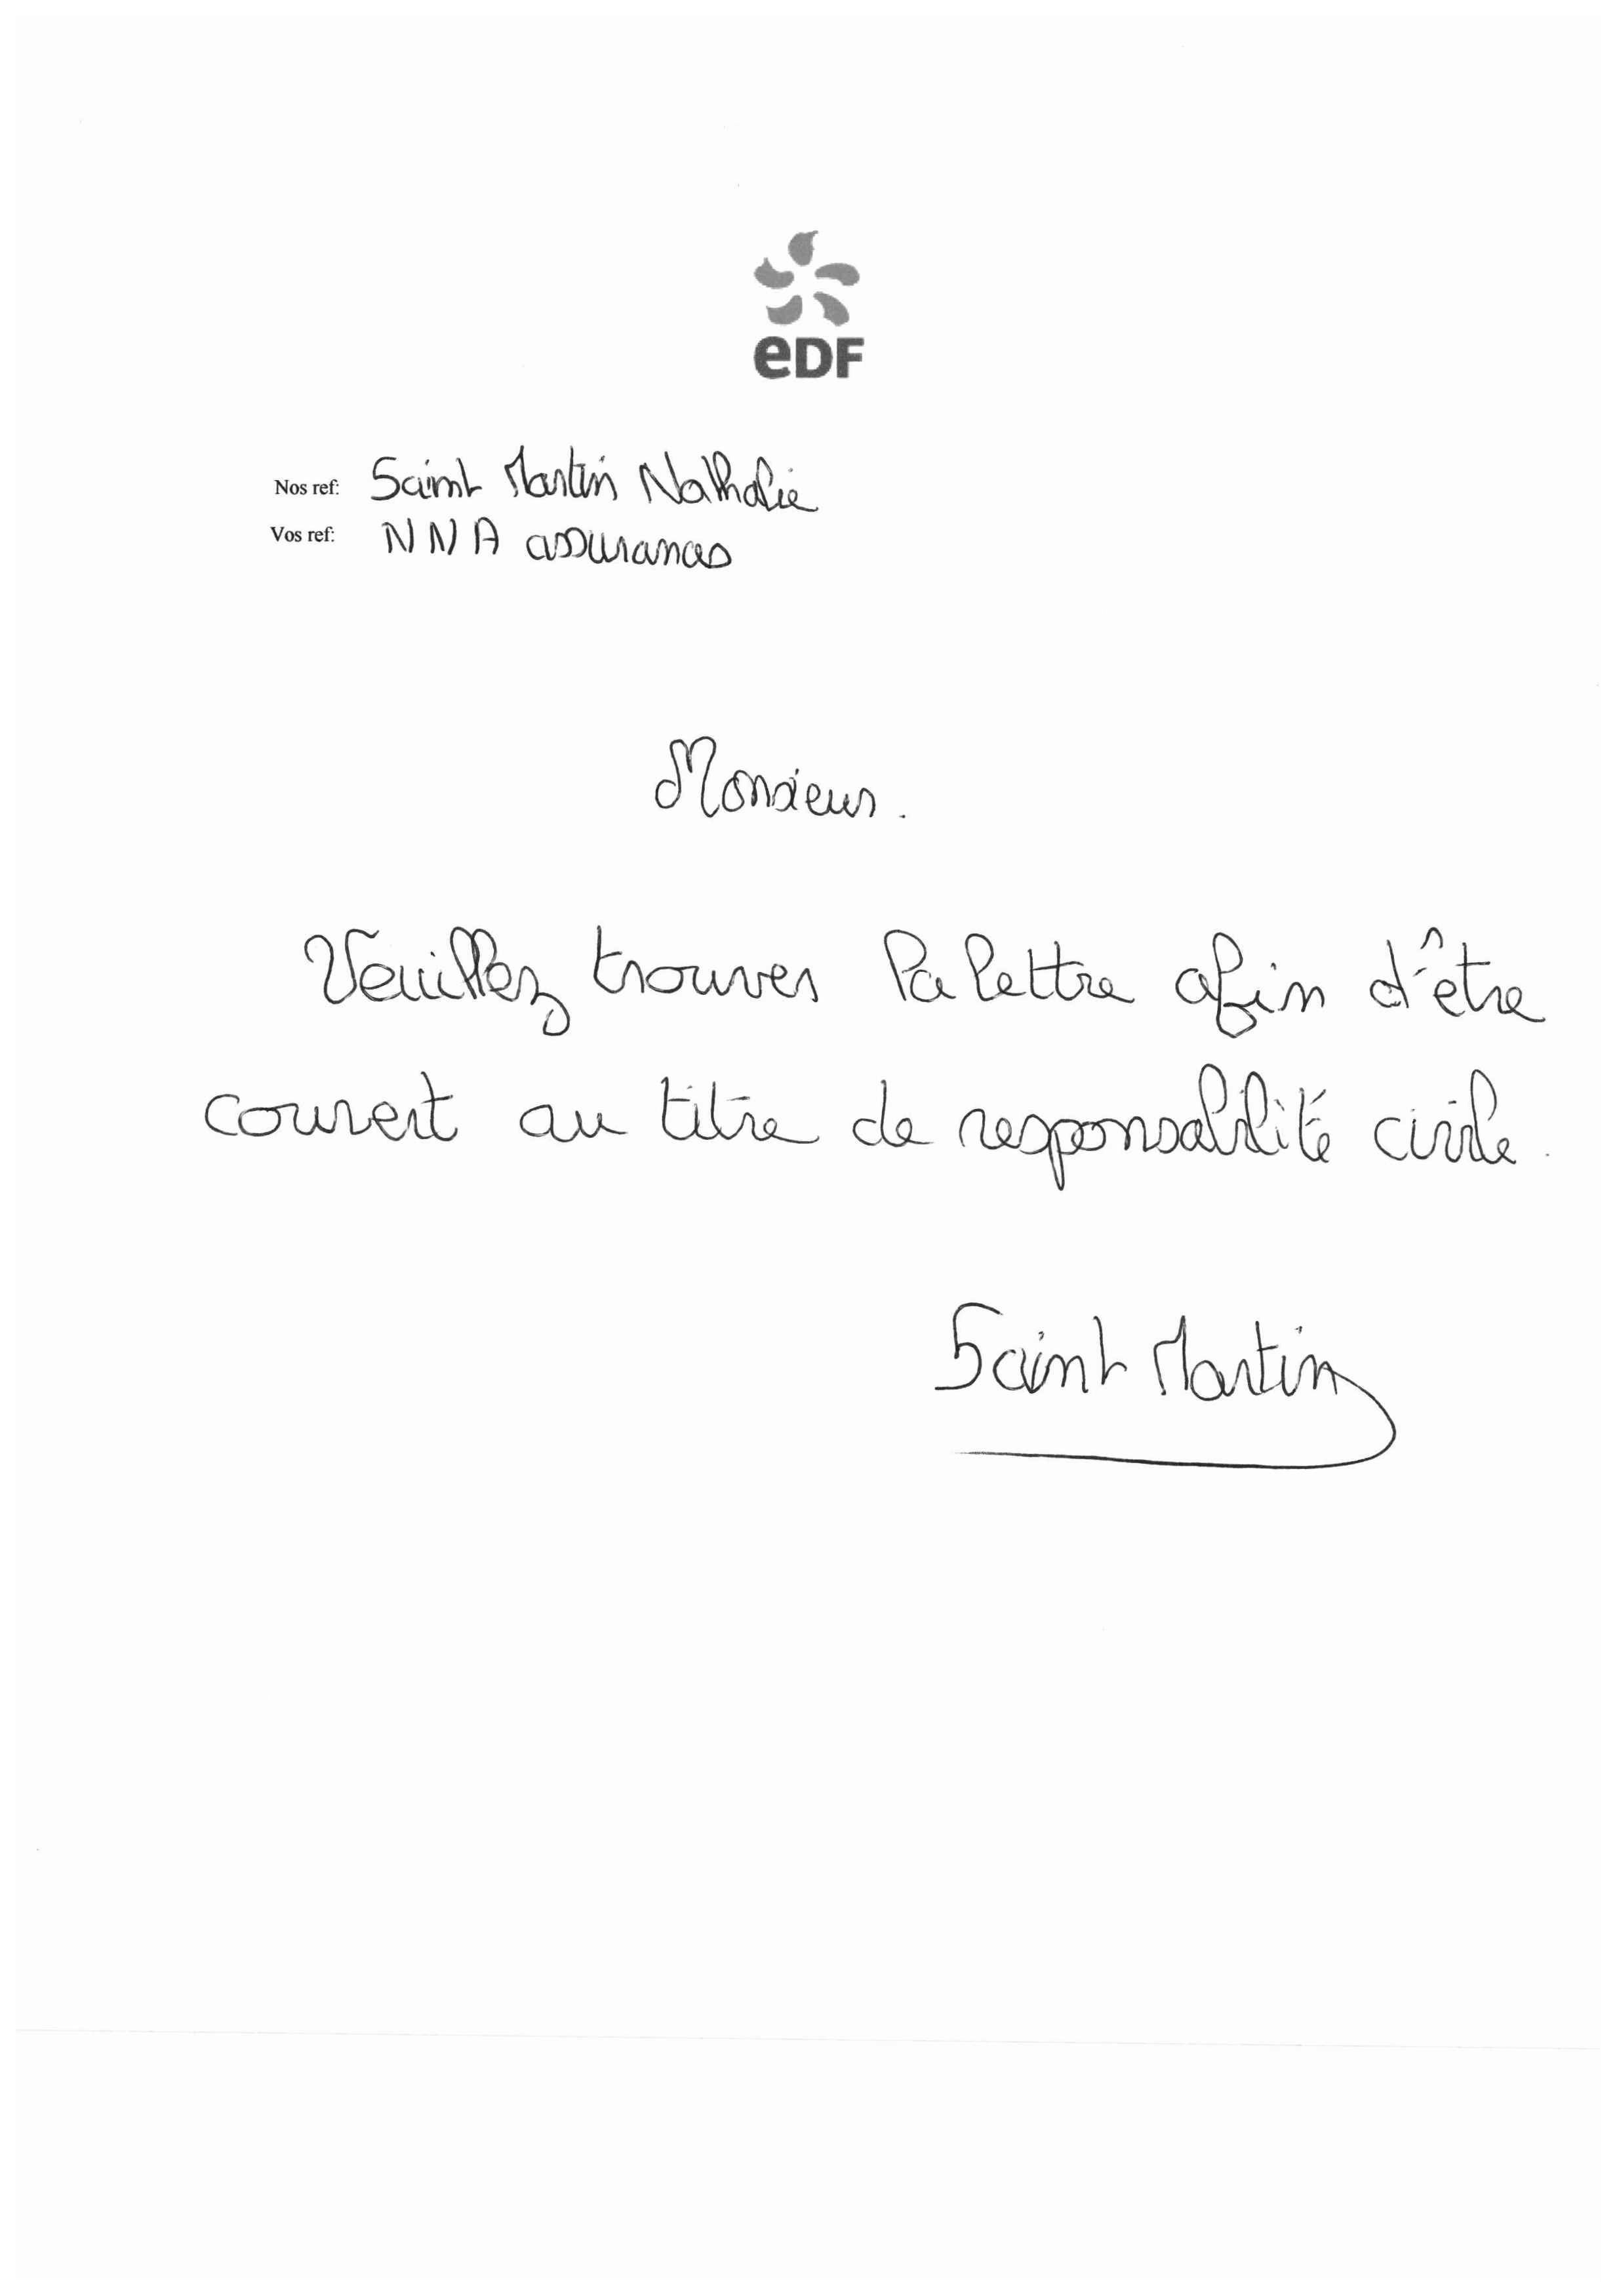 eDF
Nos ref: Saint Martin Nathalie
Vos ref: NNA assurances
Monsieur.
Veuillez trouver la lettre afin d'être
couvert au titre de responsabilité civile.
Saint Martin